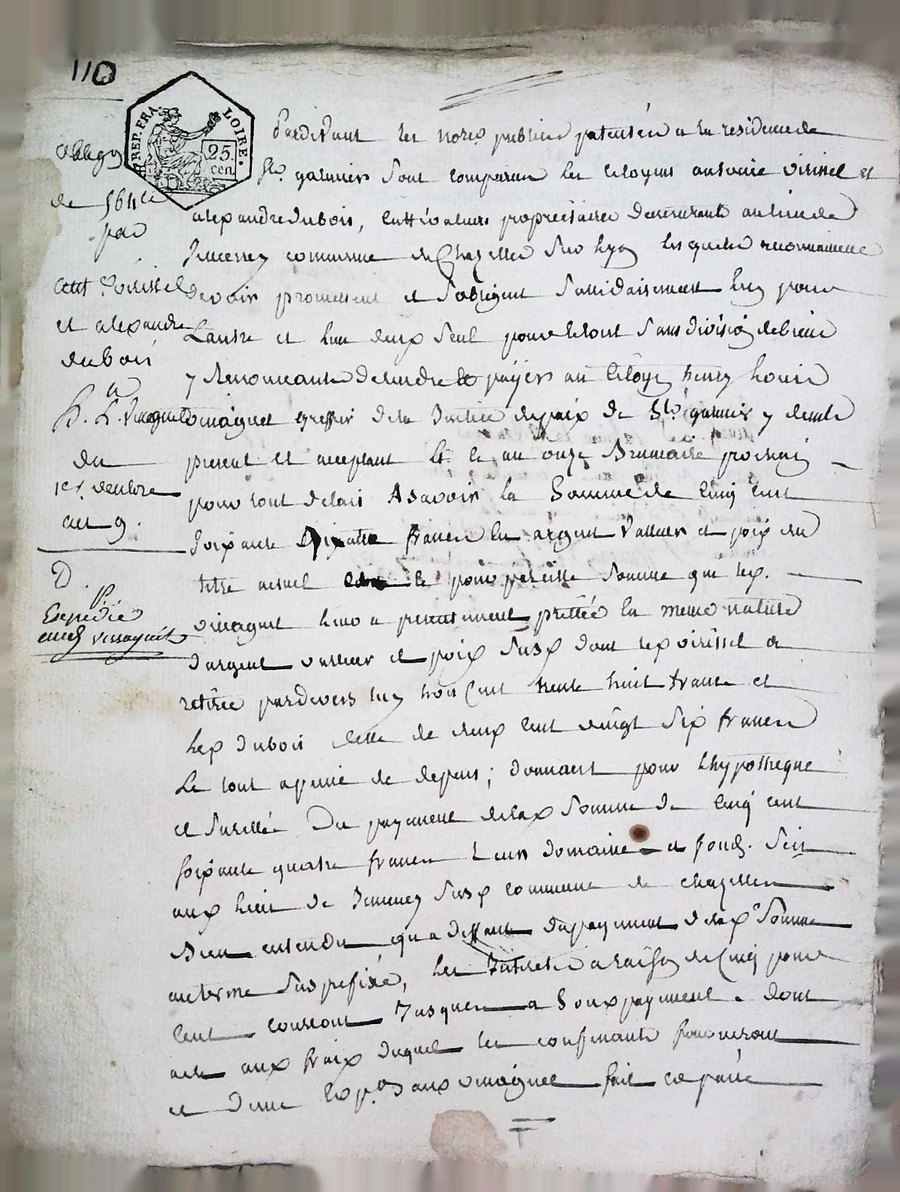 110
REP. FRA. LOIRE.
25.
cen.
obligon
de 564 ce
par
ant. Virissel
et alexandre
dubois
a
h. L.
du
1er. vendre
an 9.
D.
Expédié
Pardevant les nores publics patentés a la residence de
St. galmier sont comparus les citoyens antoine virissel et
alexandre dubois, cultivateurs proprietaires demeurants au lieu de
commune de Chazelles sur Lyon lesquels reconnaissent
devoir promettent et s'obligent solidairement lun pour
Lautre et lun deux seul pour letout sans division debiens
y renonceants de rendre et payer au citoyen henry Louis
greffier de la Justice de paix de St. galmier y demt
present et acceptant le onze Brumaire prochain
pour tout delais a savoir la Somme de cinq cent
soixante quatre francs en argent valleur et poix du
titre actuel pour pareille somme que led.
leur a presentement prettée en meme nature
d'argent valleur et poix susd dont led virissel a
retirée pardevers luy trois cent trente huit francs et
led dubois celle de deux cent vingt six francs
Le tout apeine de depens; donnant pour lhypotheque
et sureté du payement de lad somme de cinq cent
soixante quatre francs Leurs domaine et fonds. Scis
aux lieu de susd commune de chazelles
Bien entendu qu'a deffaut du payement de lad. somme
au terme sus prefixé, les Interets a raison de Cinq pour
cent courront Jusques a son payement. dont
acte aux fraix duquel les confinants fourniront
et dune Expon. aud fait et passé